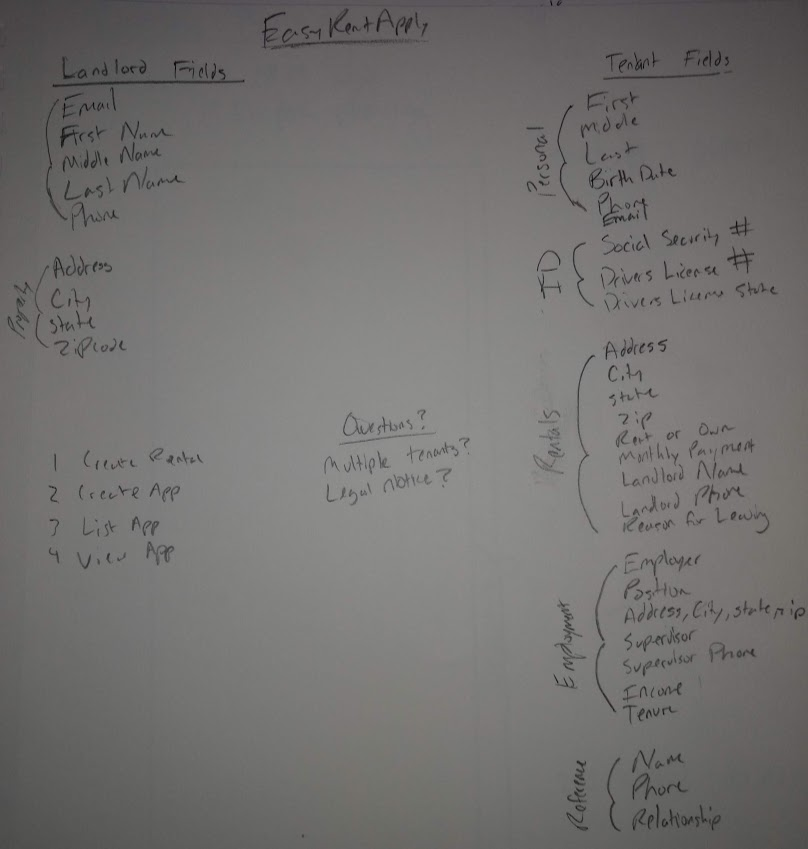 EasyRentApply
Landlord Fields
Email
First Name
Middle Name
Last Name
Phone
Address
City
State
Zipcode
1 Create Rental
2 Create App
3 List App
4 View App
Questions?
Multiple tenants?
Legal notice?
Tenant Fields
Personal
First
Middle
Last
Birth Date
Phone
Email
ID
Social Security #
Drivers License #
Drivers License State
Rentals
Address
City
State
Zip
Rent or Own
Monthly Payment
Landlord Name
Landlord Phone
Reason for Leaving
Employment
Employer
Position
Address, City, state, zip
Supervisor
Supervisor Phone
Income
Tenure
Reference
Name
Phone
Relationship